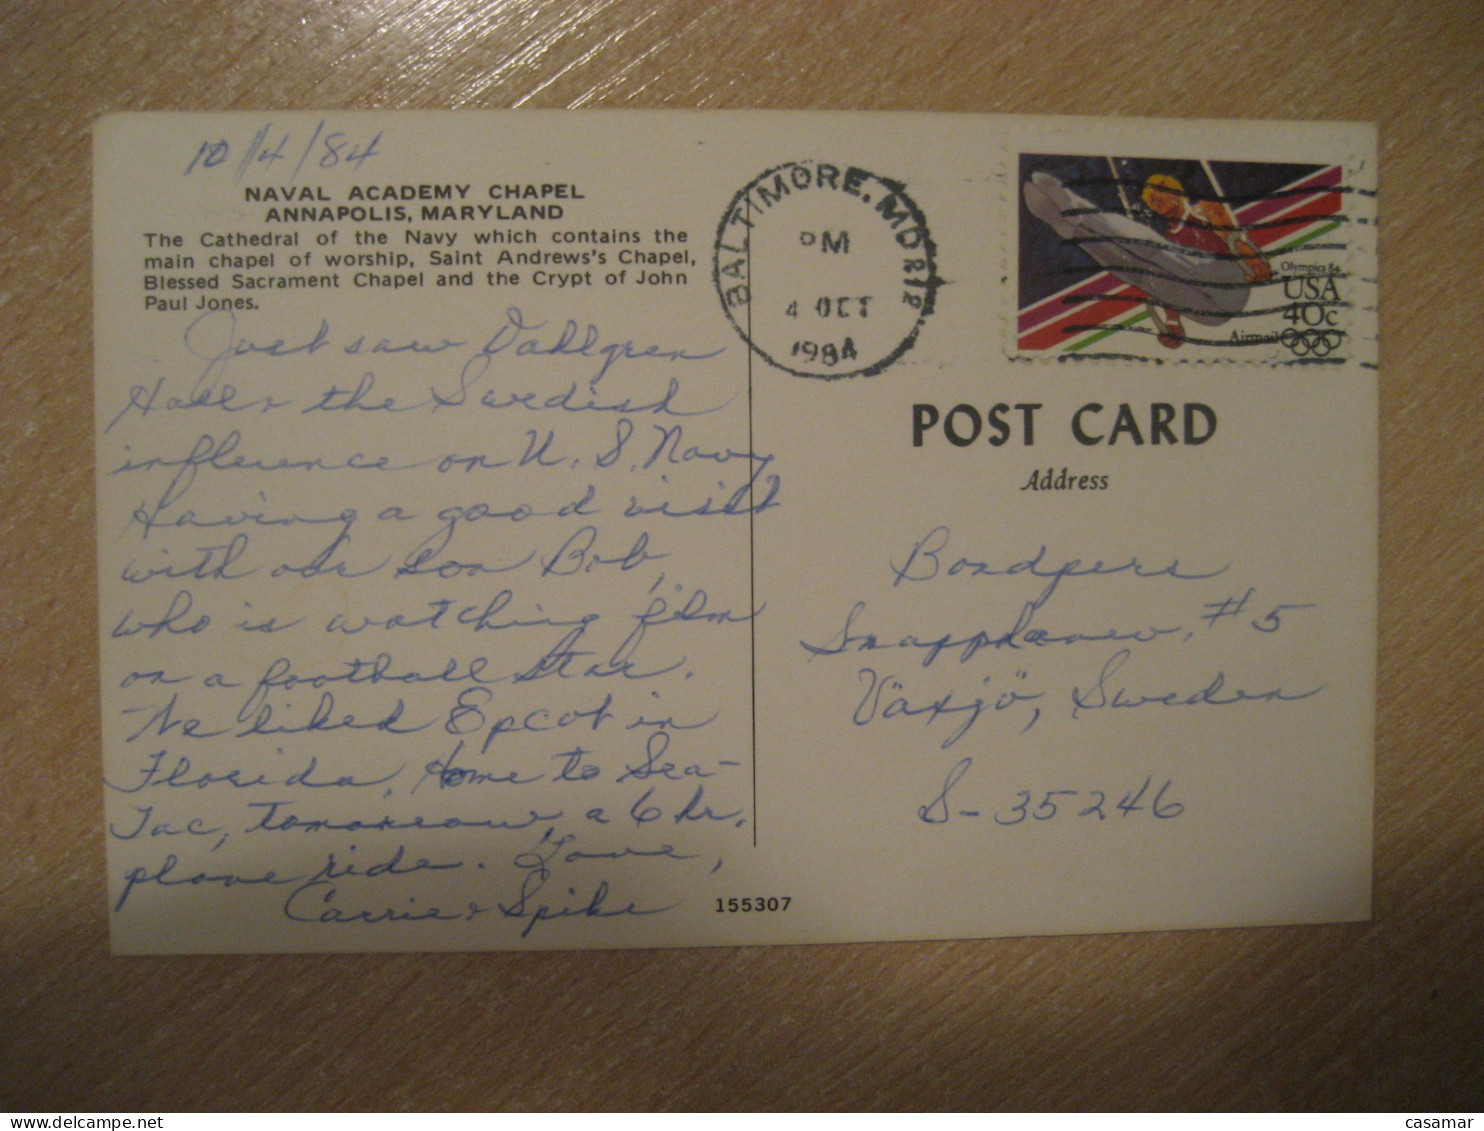 10/4/84
NAVAL ACADEMY CHAPEL
ANNAPOLIS, MARYLAND
The Cathedral of the Navy which contains the
main chapel of worship, Saint Andrews's Chapel,
Blessed Sacrament Chapel and the Crypt of John
Paul Jones.
Just saw Dahlgren
Hall & the Swedish
influence on U.S. Navy
Having a good visit
with our son Bob,
who is watching film
on a football star.
We liked Epcot in
Florida. Home to Sea-
Tac, tomorrow, a 6 hr.
plane ride. Love,
Carrie & Spike
155307
BALTIMORE, MD 212
PM
4 OCT
1984
Olympics 84
USA
40c
Airmail
POST CARD
Address
#5
Växjö, Sweden
S-35246
casamar